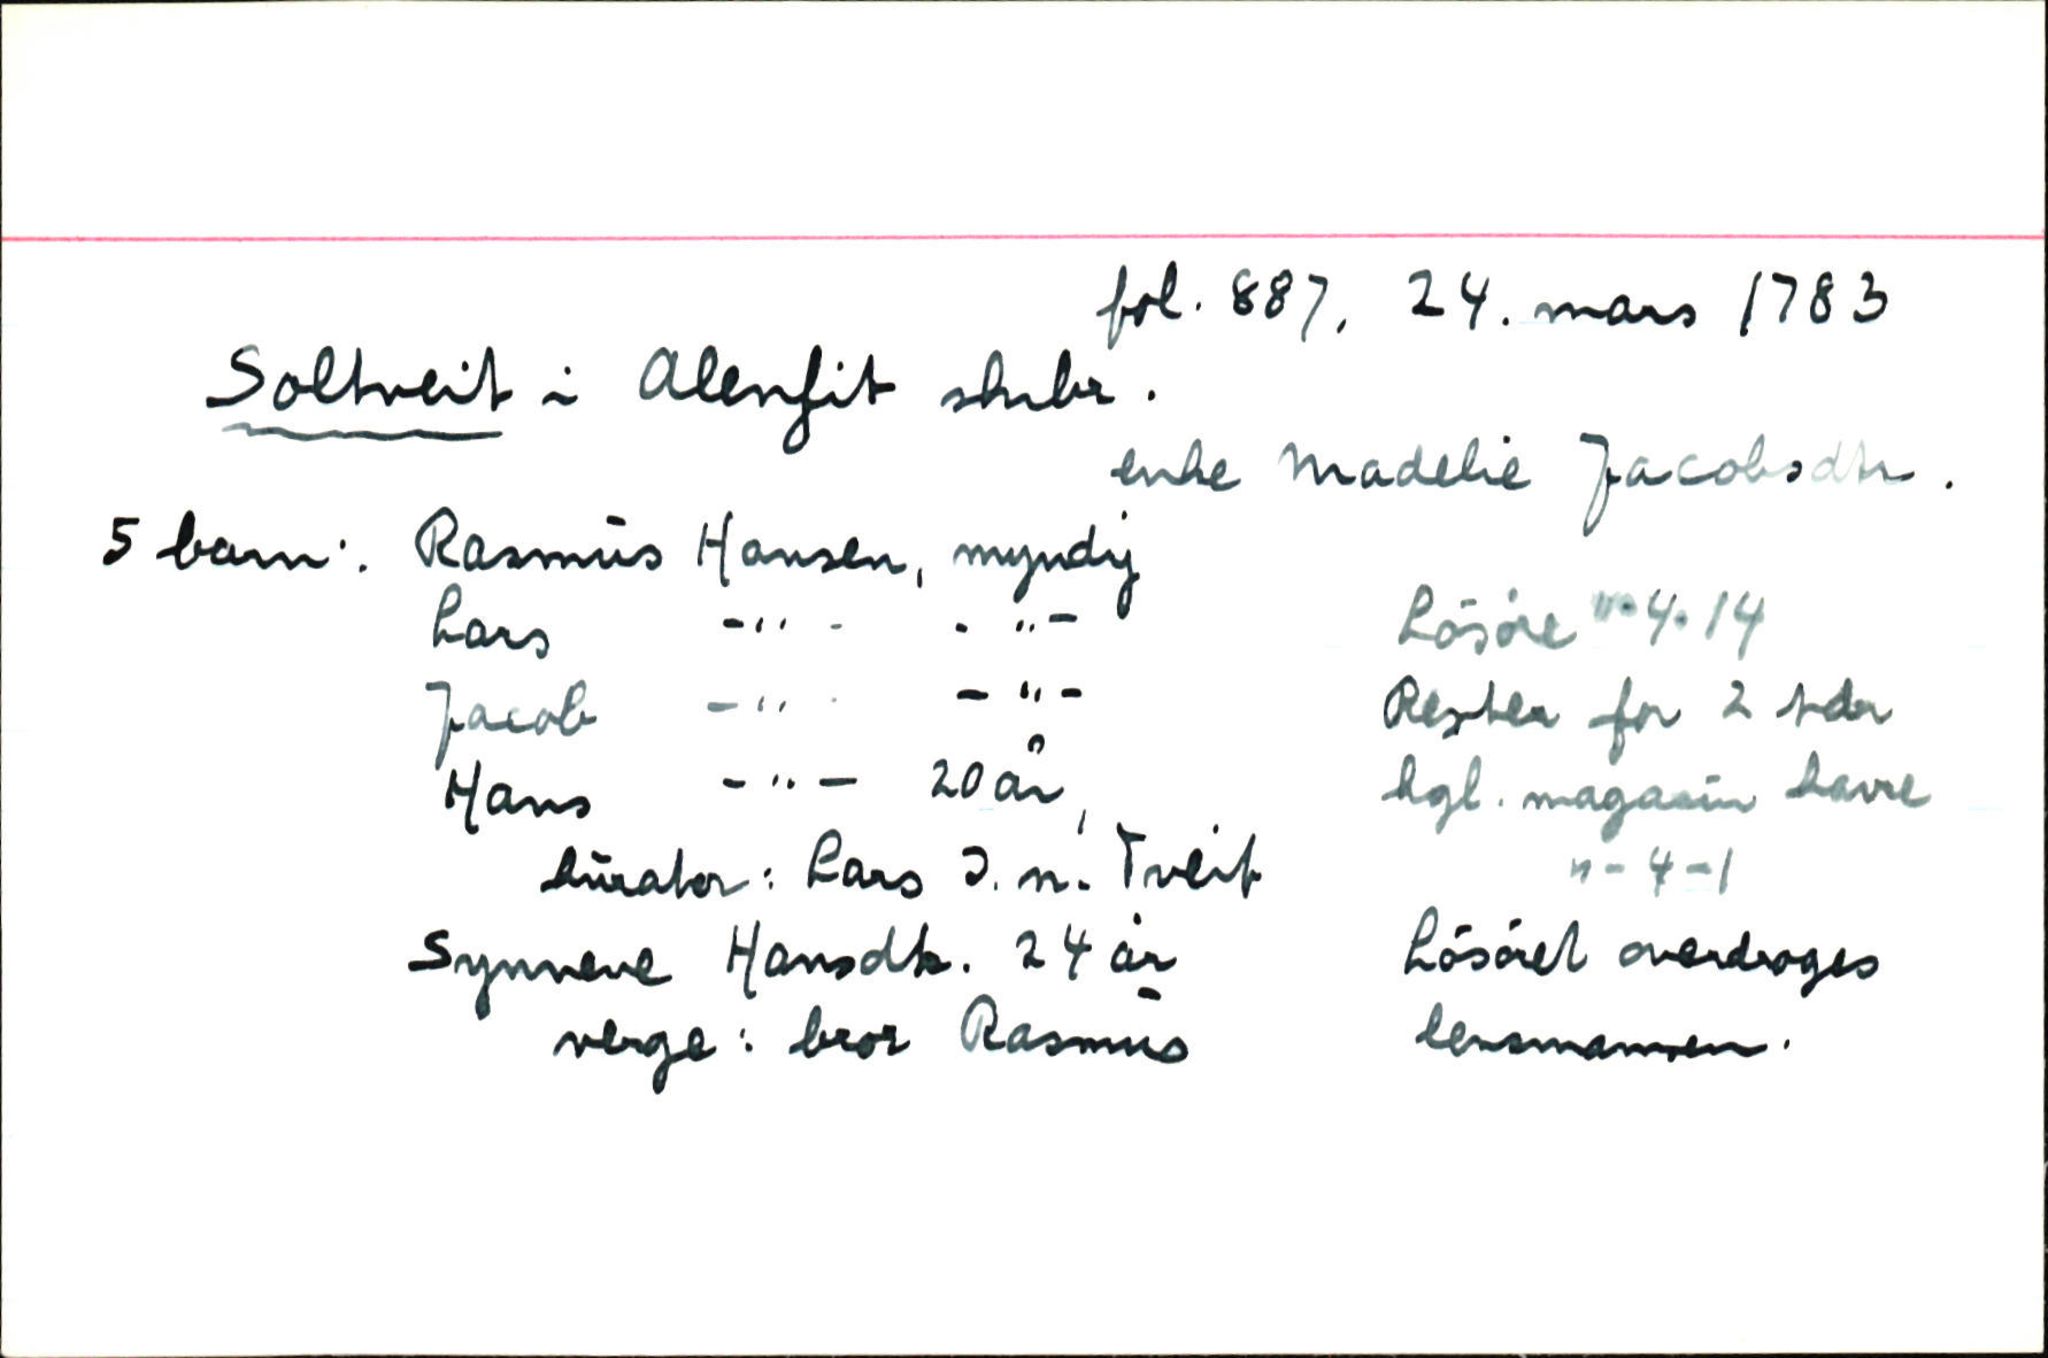 fol. 887, 24. mars 1783
Soltveit i Alenfit skibr.
enke Madelie Jacobsdtr.
5 barn: Rasmus Hansen, myndig
Lars -"- -"-
Jacob -"- -"-
Hans -"- 20 år,
kurator: Lars J. n. Tveit
Synneve Hansdtr. 24 år
verge: bror Rasmus
Lösöre "-4-14
Rester for 2 tdr
kgl. magasin havre
"-4-1
Lösöret overdroges
lensmannen.